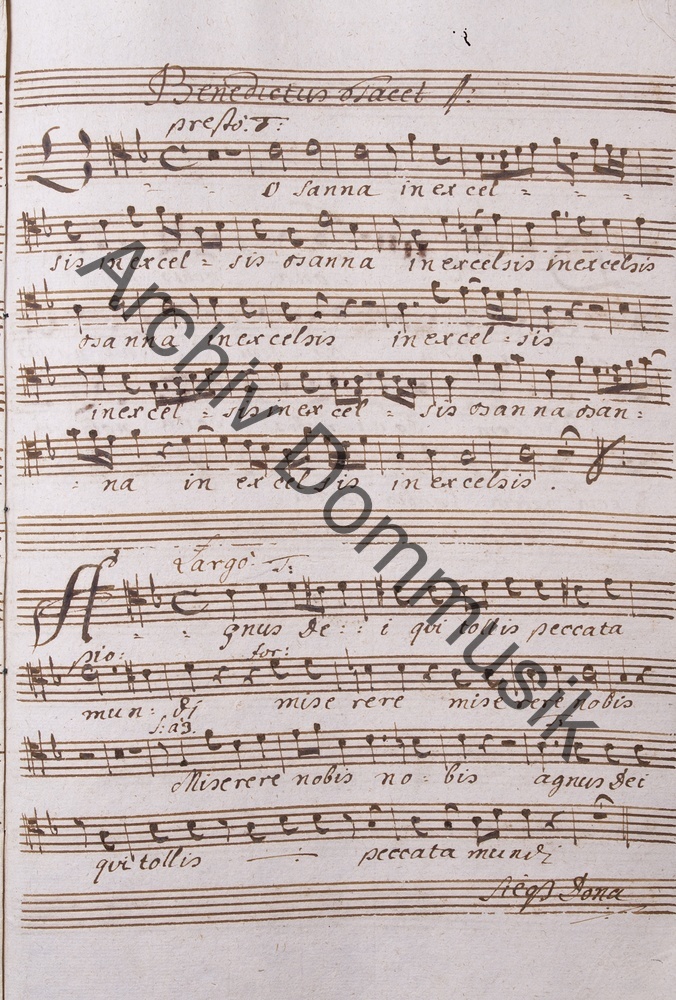 Benedictus tacet
presto. T:
O sanna in excel - - -
sis in excel - sis osanna in excelsis in excelsis
osanna in excelsis in excel - sis
in excel - sis in excel - sis osanna osan:
: na in excelsis in excelsis.
Largo T:
A - - gnus De : : i qui tollis peccata
pio: for:
mun : di miserere miserere nobis
S: a 3.
Miserere nobis no : bis agnus Dei
qui tollis peccata mundi
Dona
Archiv Dommusik